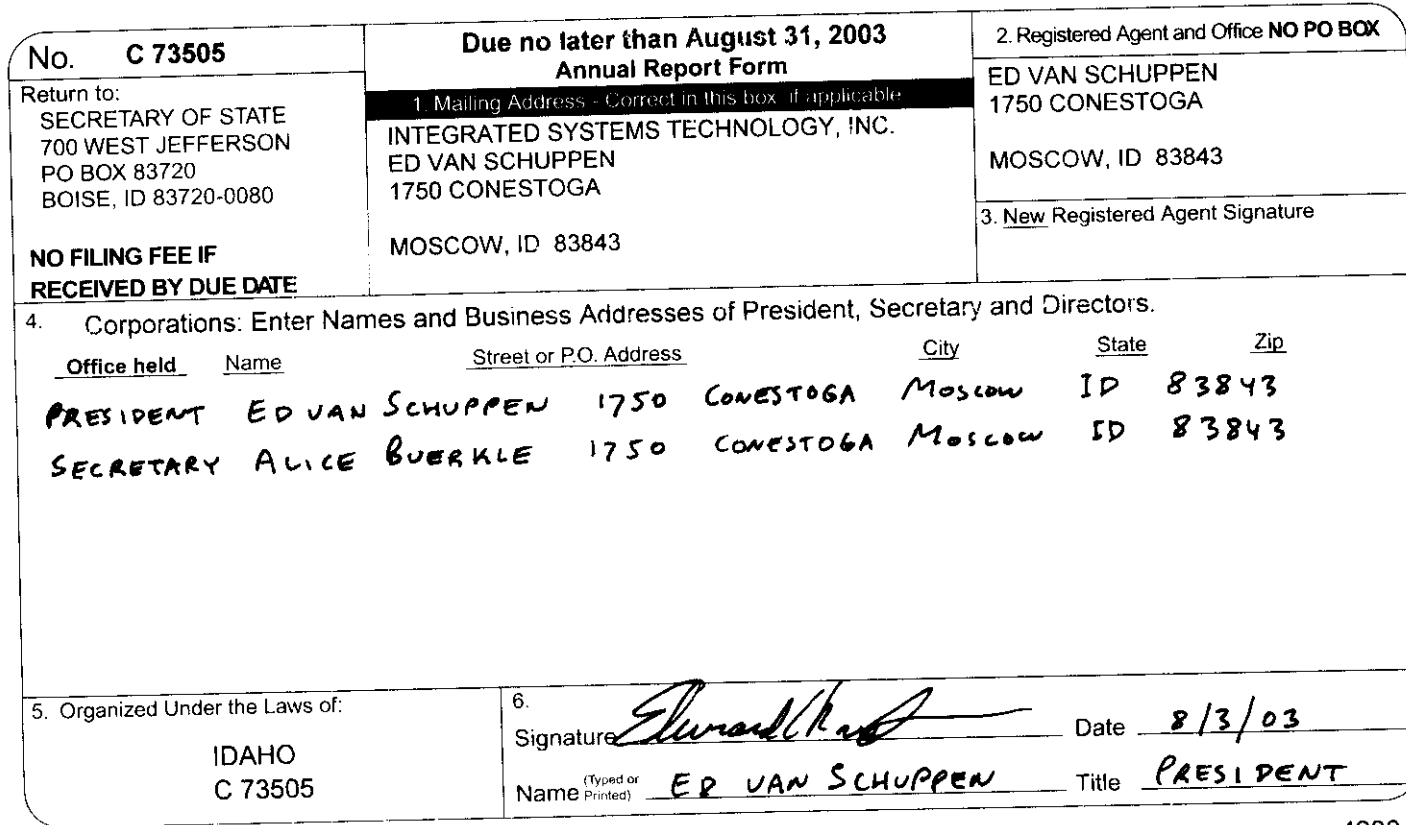 No. C 73505
Return to:
SECRETARY OF STATE
700 WEST JEFFERSON
PO BOX 83720
BOISE, ID 83720-0080
NO FILING FEE IF
RECEIVED BY DUE DATE
Due no later than August 31, 2003
Annual Report Form
1. Mailing Address - Correct in this box if applicable
INTEGRATED SYSTEMS TECHNOLOGY, INC.
ED VAN SCHUPPEN
1750 CONESTOGA
MOSCOW, ID 83843
2. Registered Agent and Office NO PO BOX
ED VAN SCHUPPEN
1750 CONESTOGA
MOSCOW, ID 83843
3. New Registered Agent Signature
4. Corporations: Enter Names and Business Addresses of President, Secretary and Directors.
Office held Name Street or P.O. Address City State Zip
PRESIDENT ED VAN SCHUPPEN 1750 CONESTOGA MOSCOW ID 83843
SECRETARY ALICE BUERKLE 1750 CONESTOGA MOSCOW ID 83843
5. Organized Under the Laws of:
IDAHO
C 73505
6.
Signature Date 8/3/03
Name (Typed or Printed) ED VAN SCHUPPEN Title PRESIDENT